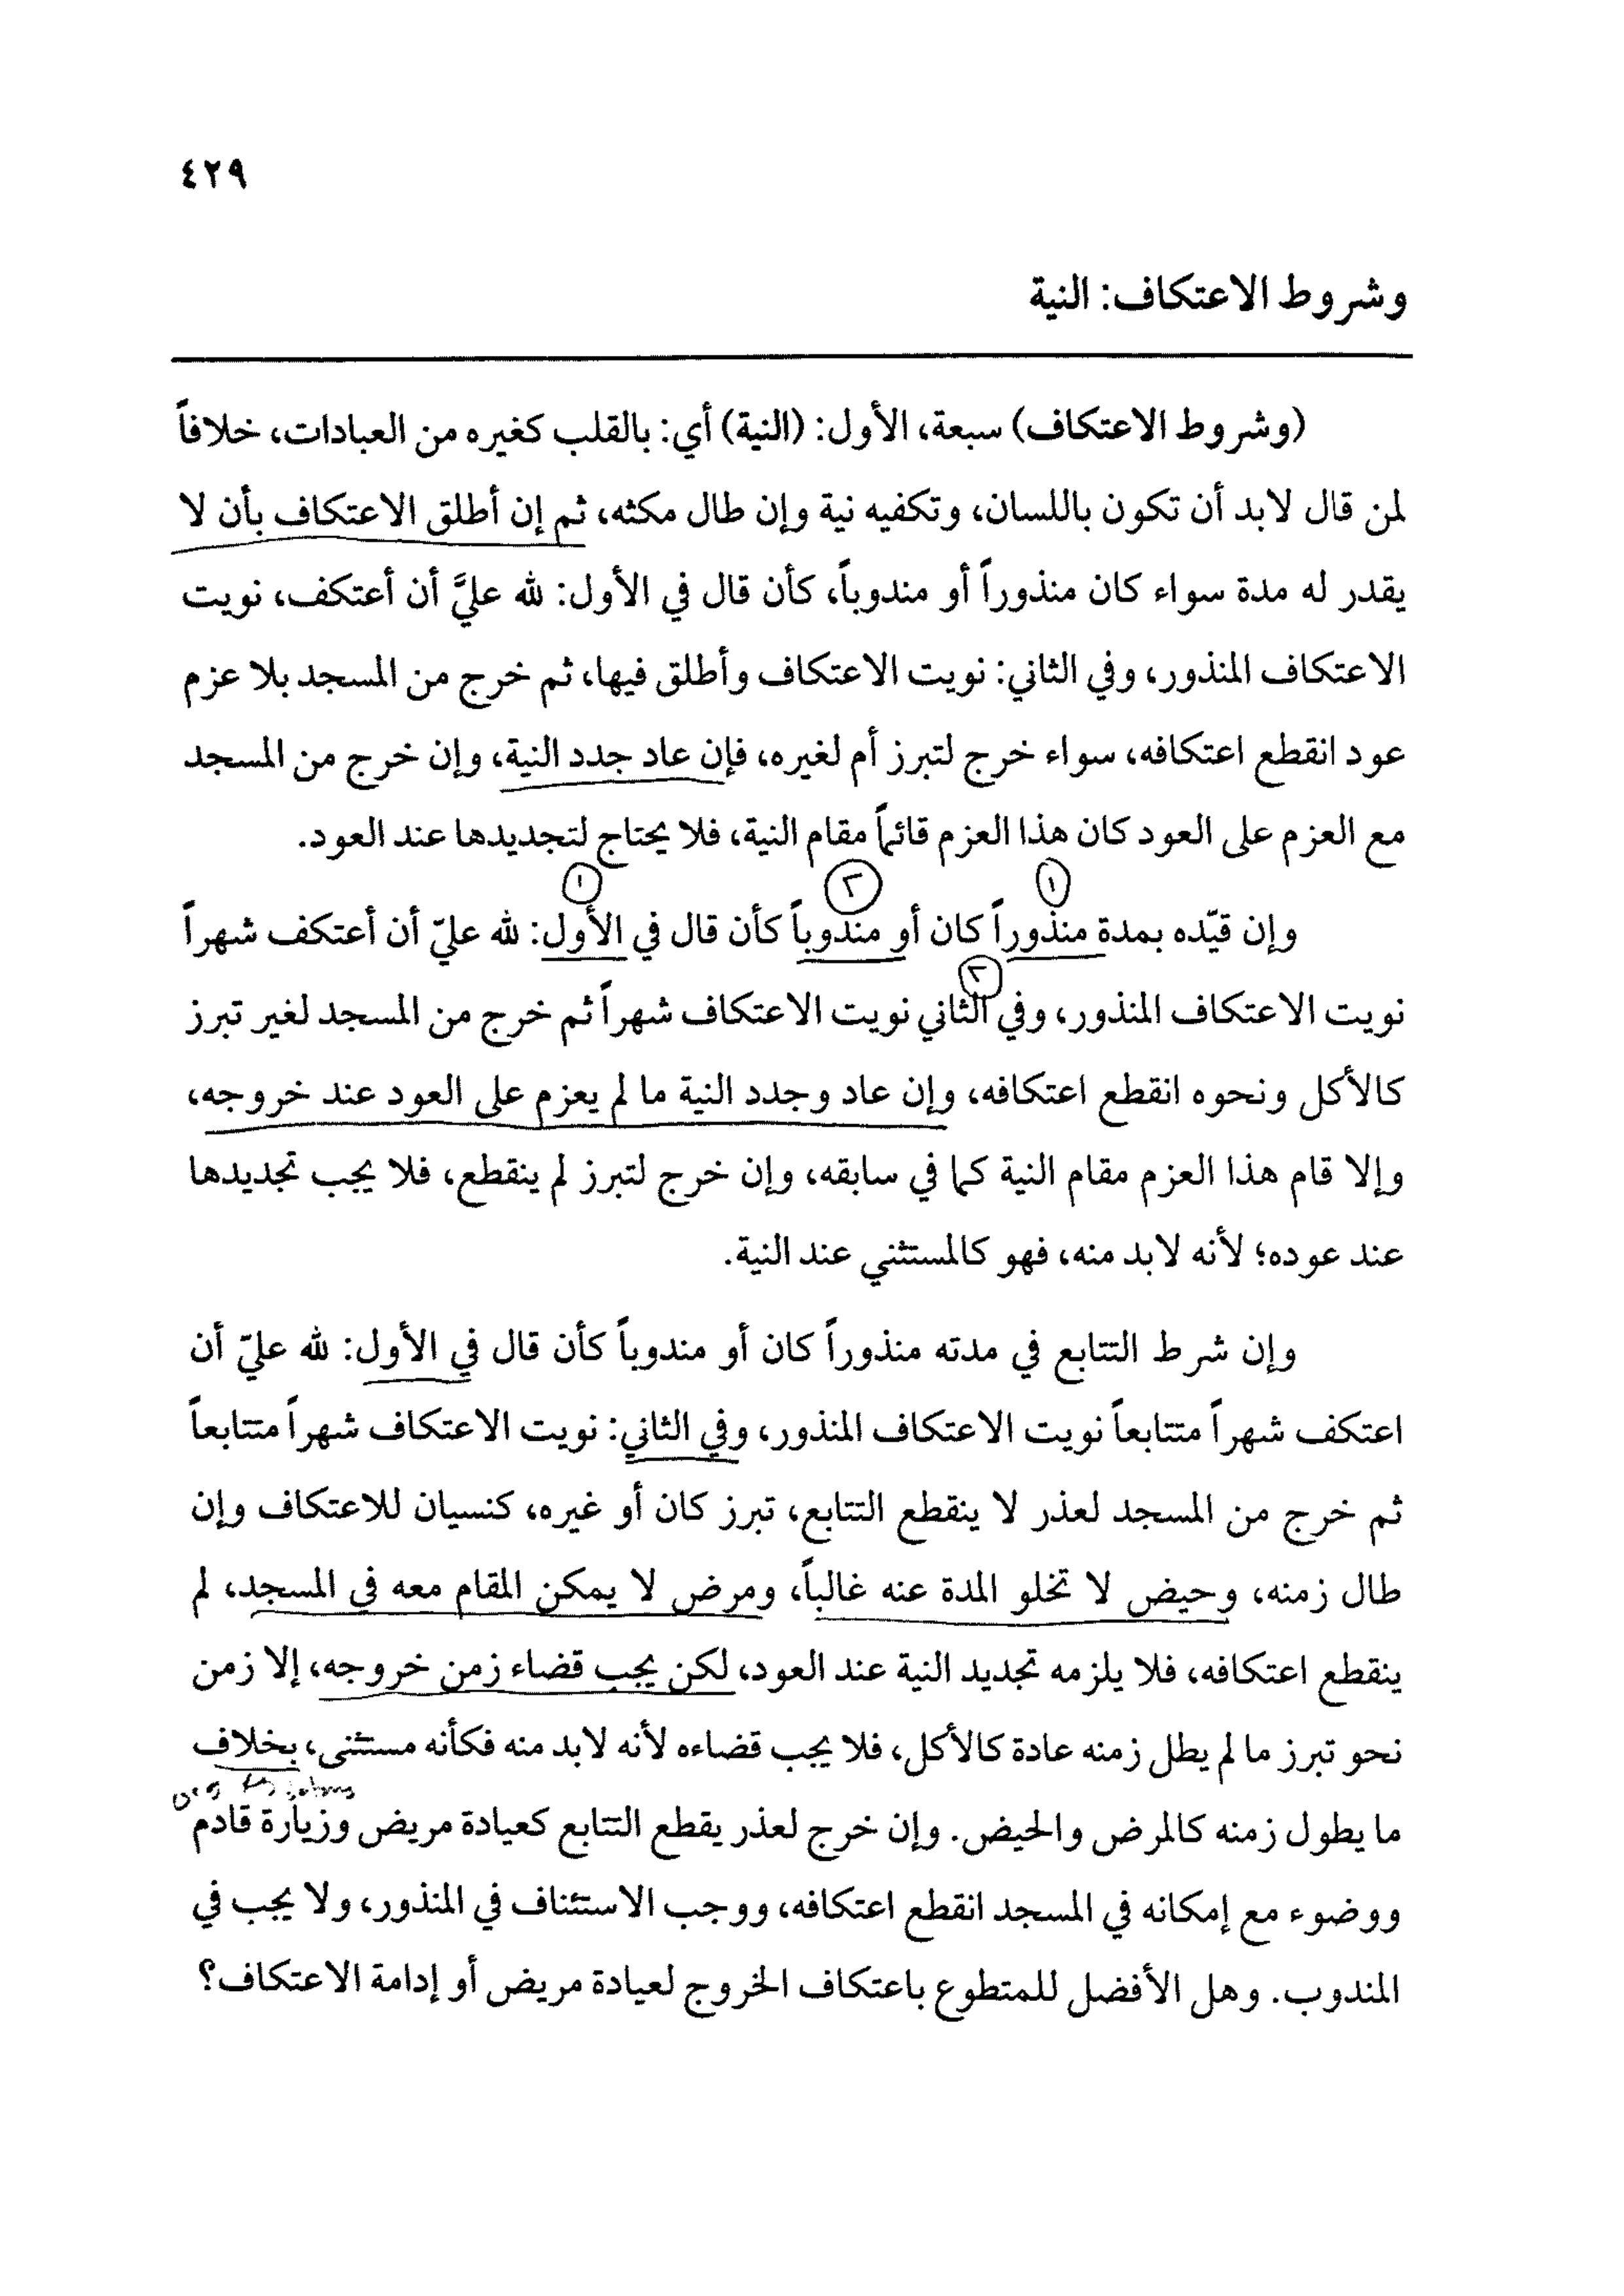 ٤٢٩
وشروط الاعتكاف: النية
(وشروط الاعتكاف) سبعة، الأول: (النية) أي: بالقلب كغيره من العبادات، خلافاً
لمن قال لابد أن تكون باللسان، وتكفيه نية وإن طال مكثه، ثم إن أطلق الاعتكاف بأن لا
يقدر له مدة سواء كان منذوراً أو مندوباً، كأن قال في الأول: لله عليَّ أن أعتكف، نويت
الاعتكاف المنذور، وفي الثاني: نويت الاعتكاف وأطلق فيها، ثم خرج من المسجد بلا عزم
عود انقطع اعتكافه، سواء خرج لتبرز أم لغيره، فإن عاد جدد النية، وإن خرج من المسجد
مع العزم على العود كان هذا العزم قائماً مقام النية، فلا يحتاج لتجديدها عند العود.
١ ٢ ١
وإن قيّده بمدة منذوراً كان أو مندوباً كأن قال في الأول: لله عليّ أن أعتكف شهراً
٢
نويت الاعتكاف المنذور، وفي الثاني نويت الاعتكاف شهراً ثم خرج من المسجد لغير تبرز
كالأكل ونحوه انقطع اعتكافه، وإن عاد وجدد النية ما لم يعزم على العود عند خروجه،
وإلا قام هذا العزم مقام النية كما في سابقه، وإن خرج لتبرز لم ينقطع، فلا يجب تجديدها
عند عوده؛ لأنه لابد منه، فهو كالمستثني عند النية.
وإن شرط التتابع في مدته منذوراً كان أو مندوباً كأن قال في الأول: لله عليّ أن
اعتكف شهراً متتابعاً نويت الاعتكاف المنذور، وفي الثاني: نويت الاعتكاف شهراً متتابعاً
ثم خرج من المسجد لعذر لا ينقطع التتابع، تبرز كان أو غيره، كنسيان للاعتكاف وإن
طال زمنه، وحيض لا تخلو المدة عنه غالباً، ومرض لا يمكن المقام معه في المسجد، لم
ينقطع اعتكافه، فلا يلزمه تجديد النية عند العود، لكن يجب قضاء زمن خروجه، إلا زمن
نحو تبرز ما لم يطل زمنه عادة كالأكل، فلا يجب قضاءه لأنه لابد منه فكأنه مستثنى، بخلاف
ما يطول زمنه كالمرض والحيض. وإن خرج لعذر يقطع التتابع كعيادة مريض وزيارة قادم
ووضوء مع إمكانه في المسجد انقطع اعتكافه، ووجب الاستئناف في المنذور، ولا يجب في
المندوب. وهل الأفضل للمتطوع باعتكاف الخروج لعيادة مريض أو إدامة الاعتكاف؟